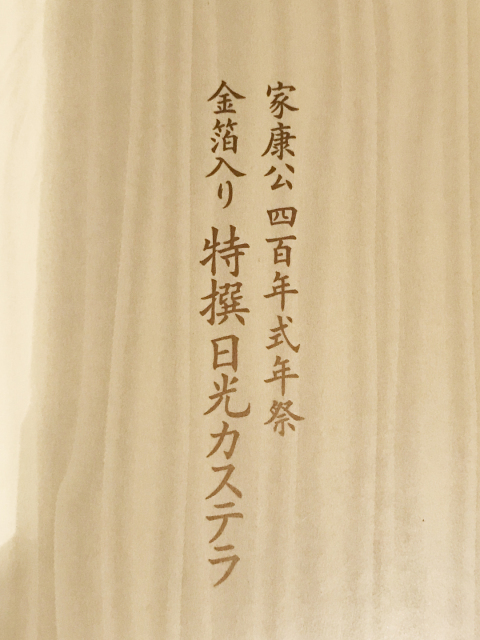 家康公四百年式年祭
金箔入り 特撰日光カステラ